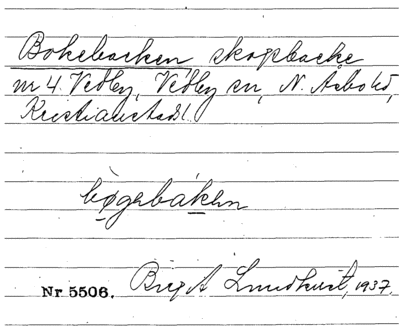 Bokebacken skogsbacke
m 4. Vedby, Vedby sn, N. Åsbo hd,
Kristianstads l.
bøgebakен
Nr 5506. Birgit Lundkvist, 1937.